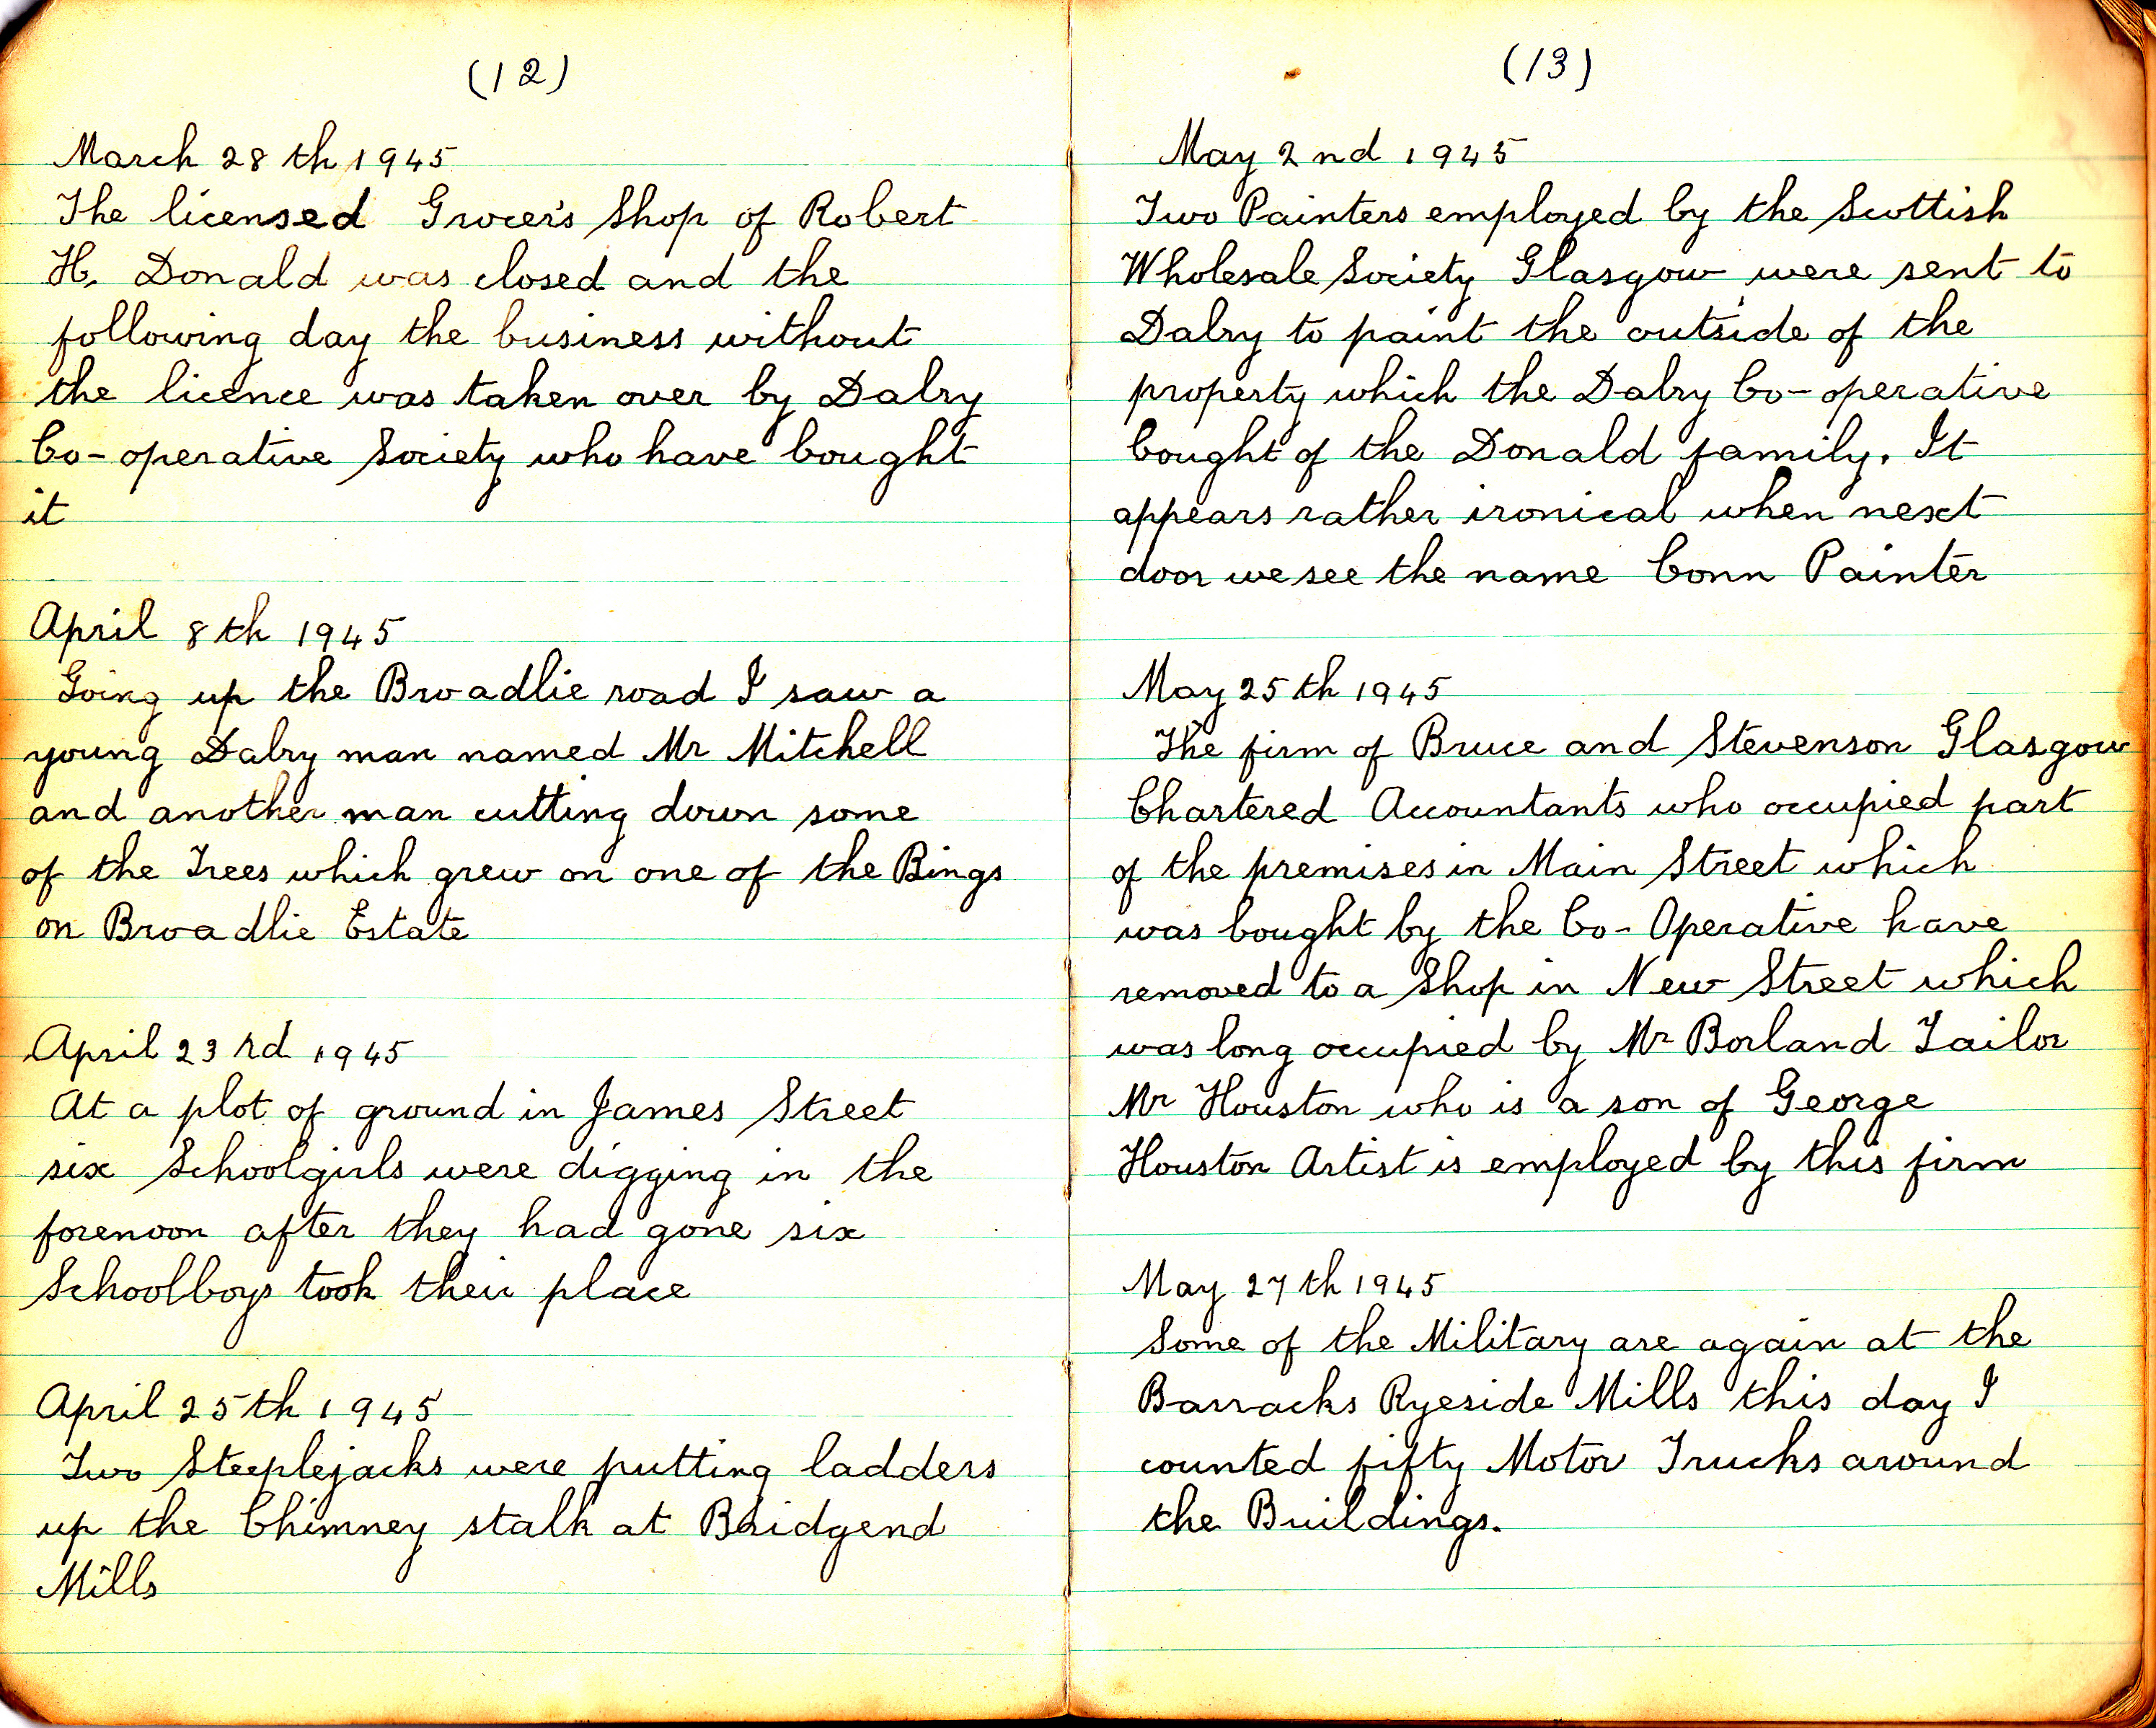 (12)
March 28th 1945
The licensed Grocer's Shop of Robert
H. Donald was closed and the
following day the business without
the licence was taken over by Dalry
Co-operative Society who have bought
it
April 8th 1945
Going up the Broadlie road I saw a
young Dalry man named Mr Mitchell
and another man cutting down some
of the Trees which grew on one of the Bings
on Broadlie Estate
April 23rd 1945
At a plot of ground in James Street
six Schoolgirls were digging in the
forenoon after they had gone six
Schoolboys took their place
April 25th 1945
Two Steeplejacks were putting ladders
up the Chimney stalk at Bridgend
Mills
(13)
May 2nd 1945
Two Painters employed by the Scottish
Wholesale Society Glasgow were sent to
Dalry to paint the outside of the
property which the Dalry Co-operative
bought of the Donald family. It
appears rather ironical when next
door we see the name Conn Painter
May 25th 1945
The firm of Bruce and Stevenson Glasgow
Chartered Accountants who occupied part
of the premises in Main Street which
was bought by the Co-Operative have
removed to a Shop in New Street which
was long occupied by Mr Borland Tailor
Mr Houston who is a son of George
Houston Artist is employed by this firm
May 27th 1945
Some of the Military are again at the
Barracks Ryeside Mills this day I
counted fifty Motor Trucks around
the Buildings.